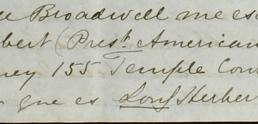 Broadwell me es
bert (Prest. American
ney 155 Temple Con
que es Long Herber